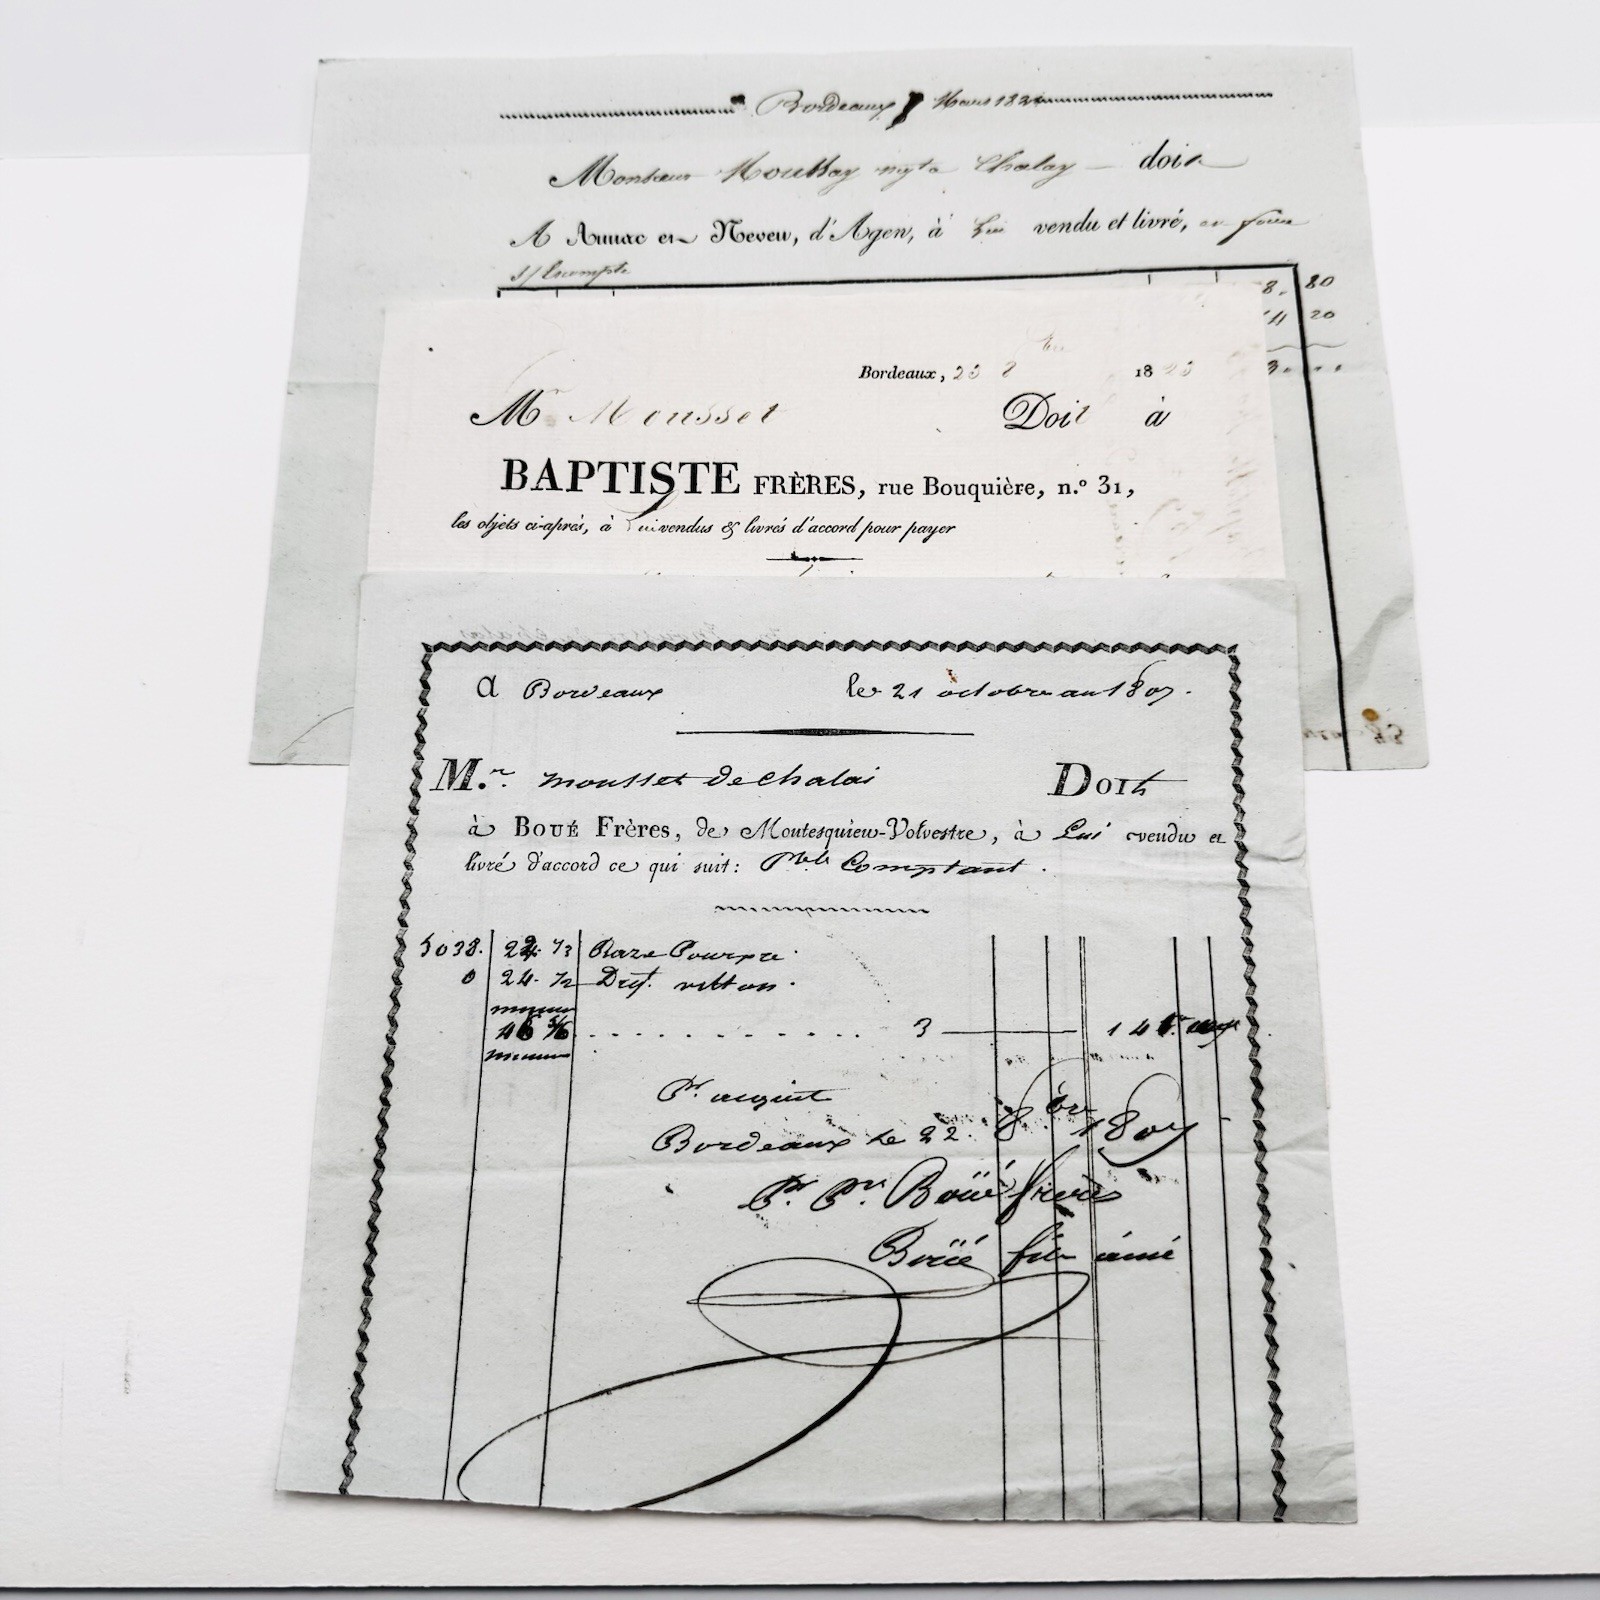 Bordeaux Mars 182
Monsieur nég.t à Chalay doit
A Aunac et Neveu, d'Agen, à Lui vendu et livré, en foire
s/ Escompte
8. 80
20
Bordeaux, 23 8bre 1823
Mr Mousset Doit à
BAPTISTE FRÈRES, rue Bouquière, n.º 31,
les objets ci-après, à Lui vendus & livrés d'accord pour payer
a Bordeaux le 21 octobre an 1807.
M.r mousset de chalai DOIT
à BOUÉ Frères, de Montesquieu-Volvestre, à Lui vendu et
livré d'accord ce qui suit: P.ble Comptant.
5038. 22. 1/3 Raze Pourpre.
0 24. 1/2 Dit.
46 5/6 . . . . . . . . . . . 3 — 14
Pr. acquit
Bordeaux le 22. 8bre 1807
P.r P.r Boüé frères
Boüé fils ainé